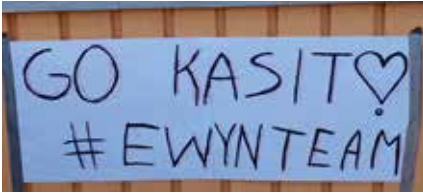 GO KASIT♡
#EWYNTEAM